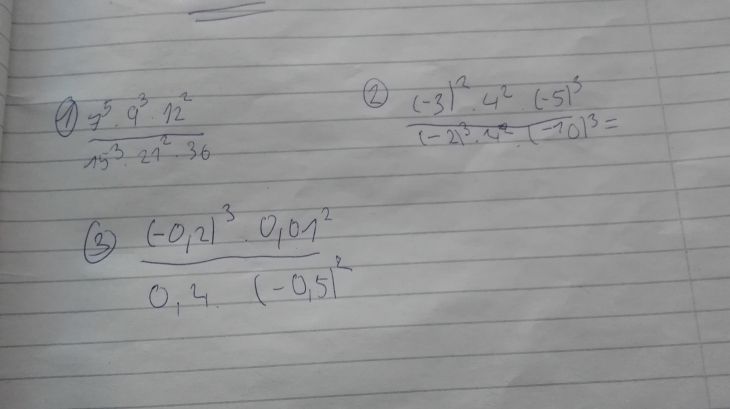 ① 7⁵ · 9³ · 12²
15³ · 21² · 36
② (-3)² · 4² · (-5)³
(-2)³ · 4² · (-10)³ =
③ (-0,2)³ · 0,01²
0,4 · (-0,5)²